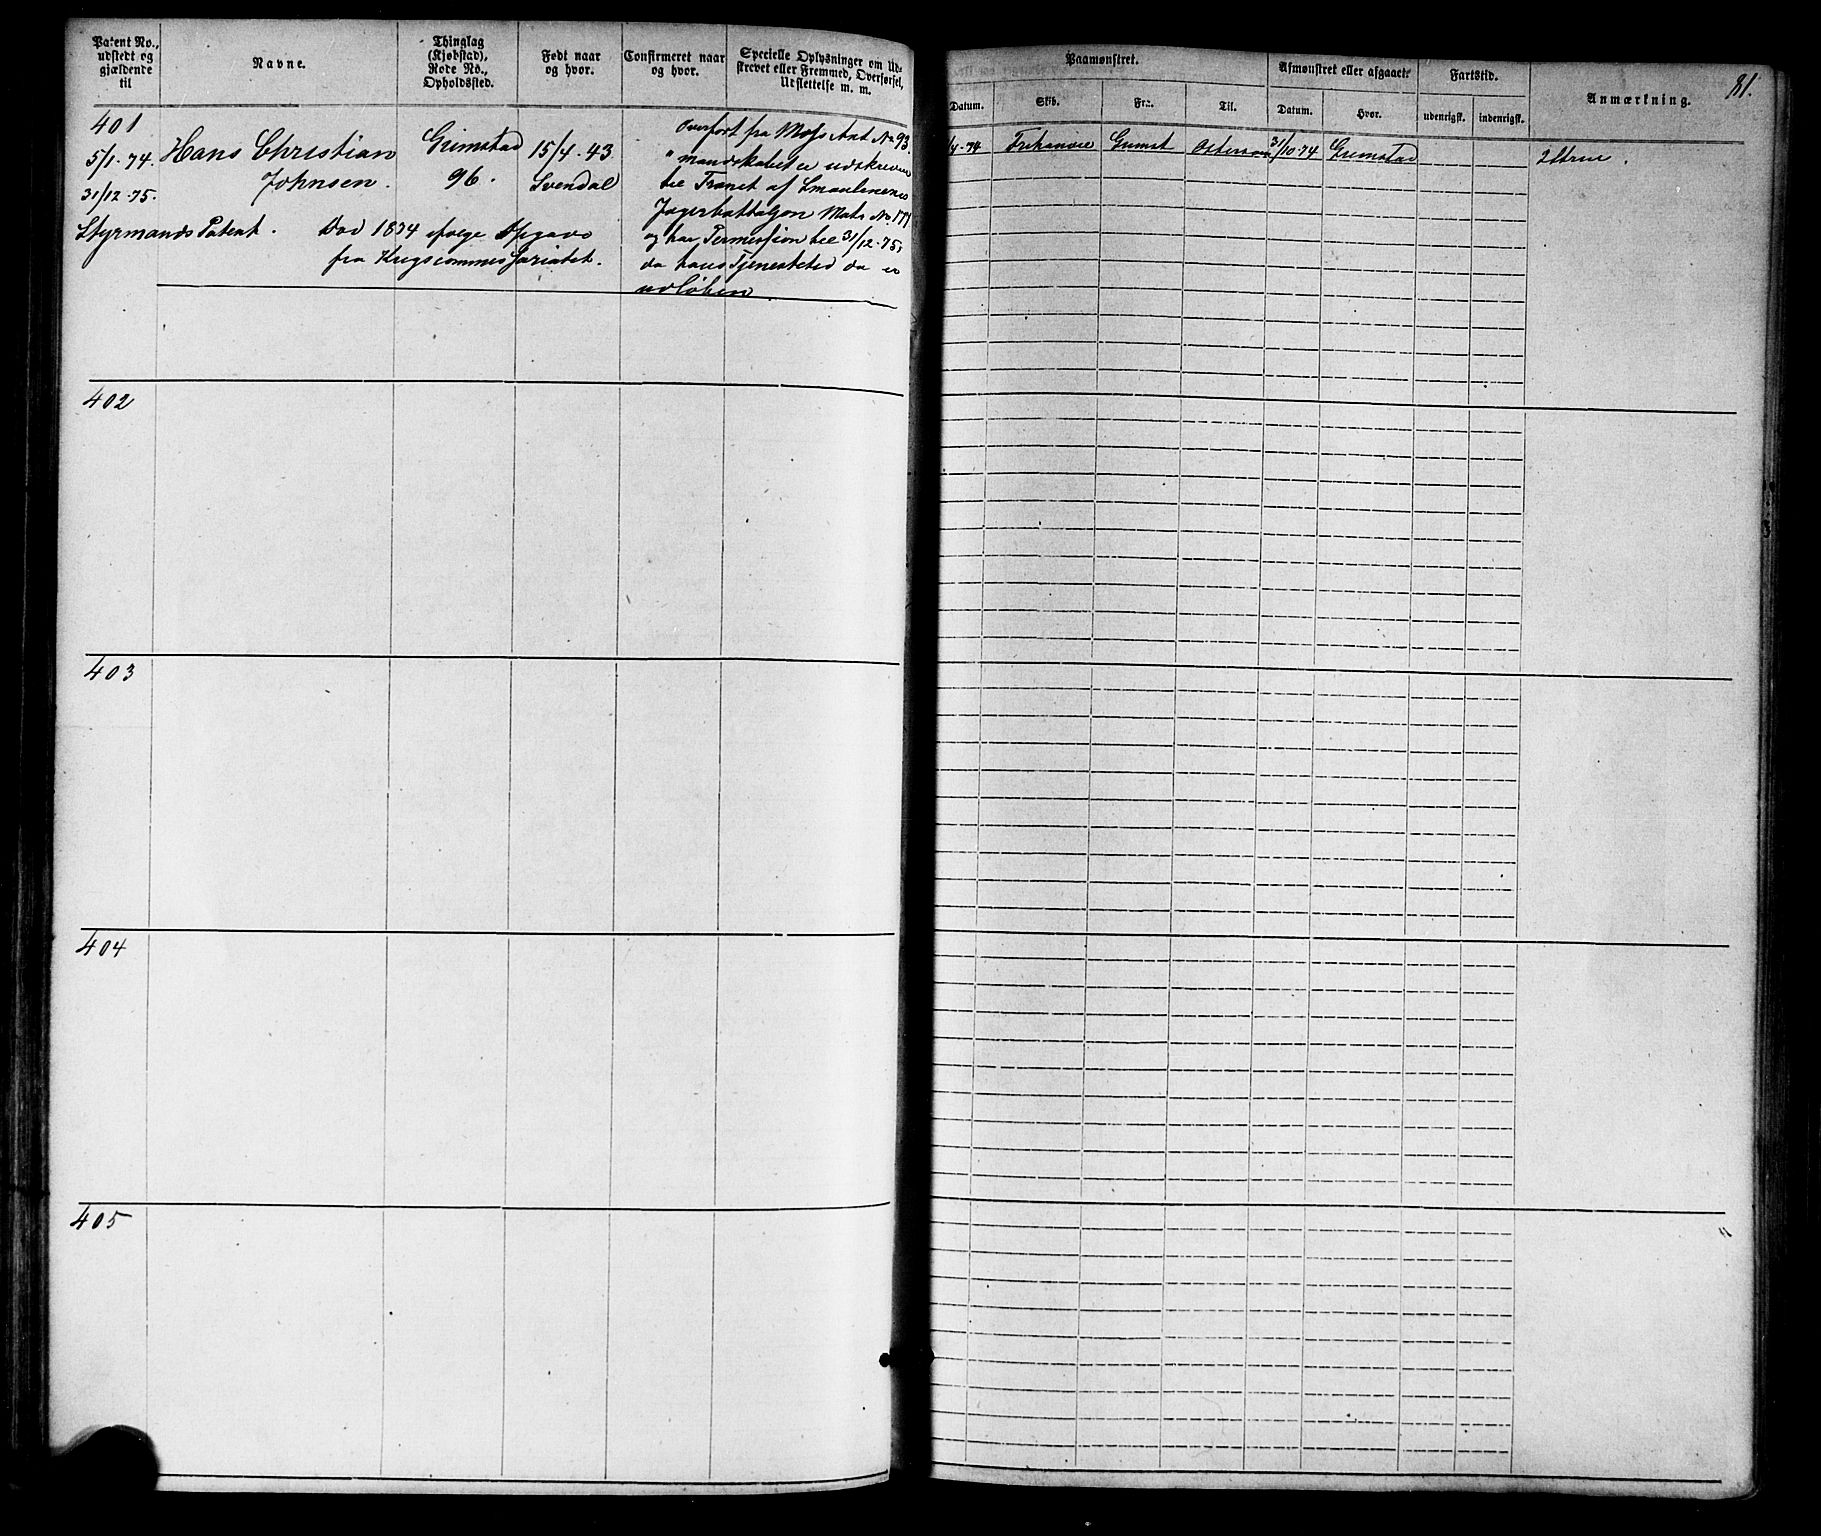 Patent No.,
udstedt og
gjældende
til
Navne.
Thinglag
(Kjøbstad),
Rode No.,
Opholdssted.
Født naar
og hvor.
Confirmeret naar
og hvor.
Specielle Oplysninger om Ud-
skrevet eller Fremmed, Overførsel,
Udslettelse m. m.
401
5/1-74.
31/12-75.
Styrmands Patent.
Hans Christian
Johnsen.
Grimstad
96.
15/4-43
Svendal
Død 1874 ifølge Opgave
fra Krigscommissariatet.
Overført fra Moss Ant No 93.
"mandskabet er udskreven
til Trænet af Smaalenenes
Jægerbattaljon Mats No 177
og har Permission til 31/12-75,
da hans Tjenestetid da er
udløben.
402
403
404
405
Paamønstret.
Afmønstret eller afgaaet.
Fartstid.
Anmærkning.
81.
Datum.
Skib.
Fra.
Til.
Datum.
Hvor.
udenrigsk.
indenrigsk.
Grimst
Østersøen
31/10-74
Grimstad
2 Strm.